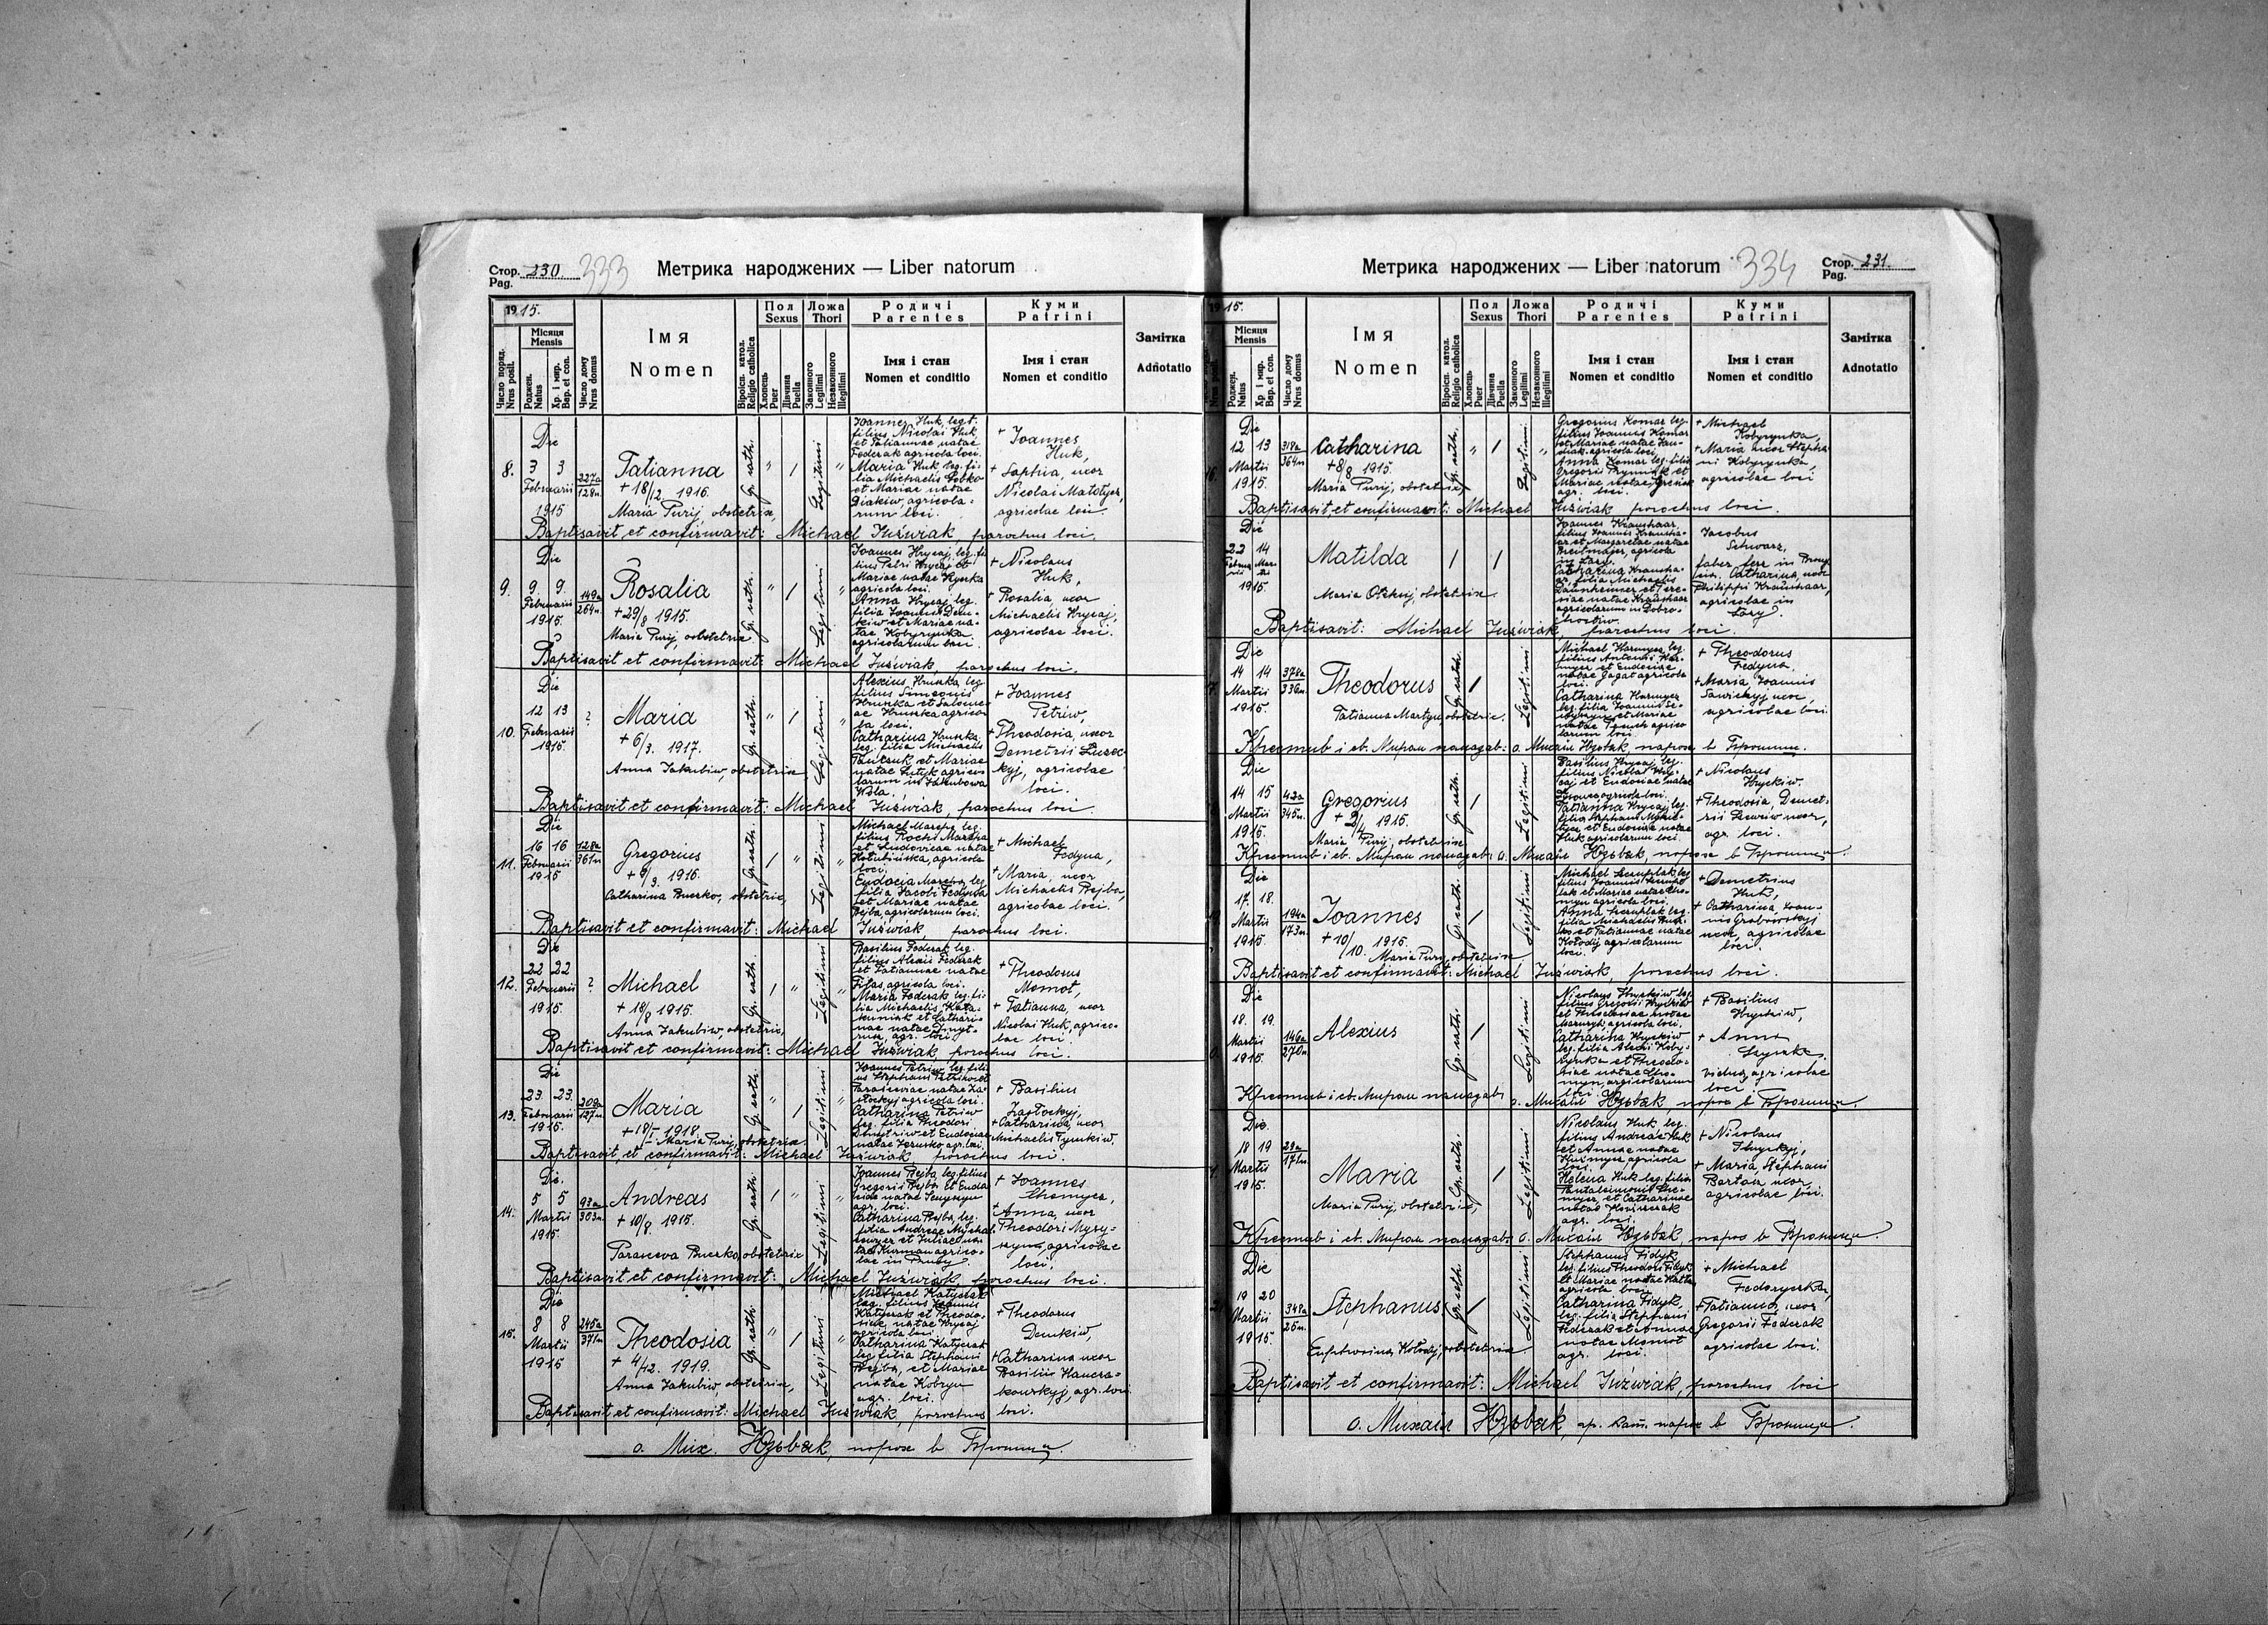 Стор. 230. 333 Метрика народжених — Liber natorum
Pag.
1915.
Число поряд. Nrus posit.
Місяця Mensis
Роджен. Natus
Хр. і мир. Bap. et con.
Число дому Nrus domus
Імя Nomen
Віроісп. катол. Religio catholica
Пол Sexus
Хлопець Puer
Дівчина Puella
Ложа Thori
Законного Legitimi
Незаконного Illegitimi
Родичі Parentes
Імя і стан Nomen et conditio
Куми Patrini
Імя і стан Nomen et conditio
Замітка Adnotatio
8.
Die
3 3
Februarii
1915
227a
128n.
Tatianna
+ 18/12. 1916.
Maria Purij obstetrix,
Gr. cath.
Legitimi
Joannes Huk, legt.
filius Nicolai Huk
et Tatiannae natae
Federak agricola loci.
Maria Huk leg. fi-
lia Michaelis
et Mariae natae
Diakiw, agricola-
rum loci.
+ Joannes
Huk,
+ Sophia, uxor
Nicolai
agricolae loci.
Baptisavit et confirmavit: Michael Juświak, parochus loci.
9.
Die
9 9.
Februarii
1915.
149a
264n.
Rosalia
+ 29/8 1915.
Maria Purij, obstetrix.
Gr. cath.
Legitimi
Joannes Hrycaj, leg. fi-
lius Petri Hrycaj et
Mariae natae
agricola loci.
Anna Hrycaj leg.
filia Joannis Dem-
kiw et Mariae na-
tae Kobyrynka
agricolarum loci.
+ Nicolaus
Huk,
+ Rosalia, uxor
Michaelis Hrycaj,
agricolae loci.
Baptisavit et confirmavit: Michael Juświak, parochus loci.
10.
Die
12 13
Februarii
1915
?
Maria
+ 6/3. 1917.
Anna Jakubiw, obstetrix
Gr. cath.
Legitimi
Alexius Hruszka, leg.
filius Simeonis
Hruszka et Salome-
ae Hruszka agrico-
la loci.
Catharina Hruszka,
leg. filia Michaelis
et Mariae
natae agrico-
larum in Jakubowa
Wola.
+ Joannes
Petriw,
+ Theodosia, uxor
Demetrii
agricolae
loci.
Baptisavit et confirmavit: Michael Juświak, parochus loci.
11.
Die
16 16
Februarii
1915
128a
361n
Gregorius
1916.
Catharina Buczko, obstetrix,
Gr. cath.
Legitimi
Michael leg.
filius
et Ludovicae natae
agricola
loci.
Eudocia leg.
filia Jacobi Fedyna
et Mariae natae
Rejba, agricolarum loci.
+ Michael
Fedyna,
+ Maria, uxor
Michaelis Rejba,
agricolae loci.
Baptisavit et confirmavit: Michael Juświak, parochus loci.
12.
Die
22 22
Februarii
1915.
?
Michael
+ 18/8 1915.
Anna Jakubiw, obstetrix,
Gr. cath.
Legitimi
Basilius Federak leg.
filius Alexii Federak
et Tatiannae natae
agricola loci.
Maria Federak leg. fi-
lia Michaelis
et Cathari-
nae natae Dmyt-
agr. loci
+ Theodorus
Momot,
+ Tatianna, uxor
Nicolai Huk, agrico-
lae loci.
Baptisavit et confirmavit: Michael Juświak, parochus loci.
13.
Die
23. 23.
Februarii
1915.
209a
127n
Maria
1918.
Maria Purij, obstetrix.
Gr. cath.
Legitimi
Joannes Petriw, leg. fili-
us Stephani
Parasceviae natae Za-
agricola loci.
Catharina Petriw
leg. filia Theodori
et Eudociae
natae agr. loci
+ Basilius
+ Catharina, uxor
Michaelis
Baptisavit et confirmavit: Michael Juświak, parochus loci.
14.
Die.
5 5
Martii
1915.
93a
303n.
Andreas
+ 10/8. 1915.
Parasceva Buczko, obstetrix
Gr. cath.
Legitimi
Joannes Rejba, leg. filius
Gregorii Rejba et Eudo-
ciae natae
agr. loci.
Catharina Rejba, leg.
filia Andreae
et Juliae na-
tae Kurman agrico-
lae in
+ Joannes
+ Anna, uxor
Theodori
agricolae
loci.
Baptisavit et confirmavit: Michael Juświak, parochus loci.
15.
Die
8 8
Martii
1915
245a
371n
Theodosia
+ 4/12. 1919.
Anna Jakubiw, obstetrix,
Gr. cath.
Legitimi
Michael Katyczak
leg. filius Joannis
Katyczak et Theodo-
siae natae Hrycaj
agricola loci.
Catharina Katyczak
leg. filia Stephani
Rejba, et Mariae
natae Kobryn
agr. loci.
+ Theodorus
Demkiw,
+ Catharina uxor
Basilii
agr. loci.
Baptisavit et confirmavit: Michael Juświak, parochus loci.
о. Мих. Юзьвак, парох в Брониця.
Метрика народжених — Liber natorum 334 Стор. 231.
Pag.
1915.
Місяця Mensis
Роджен. Natus
Хр. і мир. Bap. et con.
Число дому Nrus domus
Імя Nomen
Віроісп. катол. Religio catholica
Пол Sexus
Хлопець Puer
Дівчина Puella
Ложа Thori
Законного Legitimi
Незаконного Illegitimi
Родичі Parentes
Імя і стан Nomen et conditio
Куми Patrini
Імя і стан Nomen et conditio
Замітка Adnotatio
16.
Die
12 13
Martii
1915.
318a
364n
Catharina
+ 8/8 1915.
Maria Purij, obstetrix,
Gr. cath.
Legitimi
Gregorius Komar leg.
filius Joannis Komar
et Mariae natae
agricola loci,
Anna Komar leg. filia
Gregorii et
Mariae natae
agr. loci.
+ Michael
Kobyrynka,
+ Maria uxor Stepha-
ni Kobyrynka,
agricolae loci
Baptisavit et confirmavit: Michael Juświak parochus loci.
Die
22 14
Februarii Martii
1915.
Matilda
Maria obstetrix
Joannes Kraushaar,
filius Joannis Krausha-
ar et Margaretae natae
agricola
in Łazy.
Catharina Krausha-
ar, filia Michaelis
et There-
siae natae Kraushaar
agricolarum in Dobro-
hostiw.
Jacobus
Schwarz,
faber
Catharina, uxor
Philippi Kraushaar,
agricolae in
Łazy
Baptisavit: Michael Juświak, parochus loci.
17.
Die
14 14
Martii
1915.
378a
336n.
Theodorus
Tatianna Martyn obstetrix.
Gr. cath.
Legitimi
Michael leg.
filius Antonii
et Eudociae
natae agricola
loci.
Catharina
leg. filia Joannis
et Mariae
natae agrico-
larum loci.
+ Theodorus
Fedyna.
+ Maria Joannis
Sawickyj uxor,
agricolae loci.
Крестив і св. Миром памазав: о. Михаіл Юзьвак, парох в Брониця.
Die
14 15
Martii
1915.
42a
345n.
Gregorius
1915.
Maria Purij, obstetrix
Gr. cath.
Legitimi
Basilius Hrycaj leg.
filius Nicolai Hry-
caj et Eudociae natae
agricola loci.
Tatianna Hrycaj leg.
filia Stephani
et Eudociae natae
Huk agricolarum loci.
+ Nicolaus
Hryckiw.
+ Theodosia, Demet-
rii uxor,
agr. loci.
Крестив і св. Миром памазав: о. Михаіл Юзьвак, парох в Брониця.
Die
17. 18.
Martii
1915.
194a
173n.
Joannes
+ 10/10. 1915.
Maria Purij, obstetrix
Gr. cath.
Legitimi
Michael leg.
filius Joannis
et Mariae natae
agricola loci.
Anna leg.
filia Michaelis
et Tatiannae natae
Kołodij agricolarum
loci.
+ Demetrius
Huk,
+ Catharina, Joan-
nis Grabowskyj
uxor, agricolae
loci.
Baptisavit et confirmavit: Michael Juświak, parochus loci.
Die
18. 19.
Martii
1915.
146a
270n
Alexius
Gr. cath.
Legitimi
Nicolaus Hryckiw leg.
filius Gregorii Hryckiw
et Theodosiae natae
agricola loci,
Catharina Hryckiw
leg. filia Alexii Koby-
rynka et Theodo-
siae natae
agricolarum
loci.
+ Basilius
Hryckiw,
+ Anna
vidua, agricolae
loci.
Крестив і св. Миром памазав: о. Михаіл Юзьвак парох в Брониця.
Die.
18 19
Martii
1915.
29a
171n.
Maria
Maria Purij, obstetrix,
Gr. cath.
Legitimi
Nicolaus Huk leg.
filius Andreae Huk
et Annae natae
agricola
loci.
Helena Huk leg. filia
Pantaleimonis
et Catharinae
natae
agr. loci.
+ Nicolaus
+ Maria, Stephani
Bartan uxor,
agricolae loci.
Крестив і св. Миром памазав: о. Михаіл Юзьвак, парох в Брониця.
Die
19 20
Martii
1915.
348a
25n.
Stephanus
Euphrosina Kołodij, obstetrix
Gr. cath.
Legitimi
Stephanus Fidyk
leg. filius Theodori Fidyk
et Mariae natae
agricola loci
Catharina Fidyk,
leg. filia Stephani
Federak et Annae
natae Momot
agr. loci.
+ Michael
+ Tatianna, uxor
Gregorii Federak
agricolae loci.
Baptisavit et confirmavit: Michael Juźwiak, parochus loci
о. Михаіл Юзьвак, гр. кат. парох в Брониця.